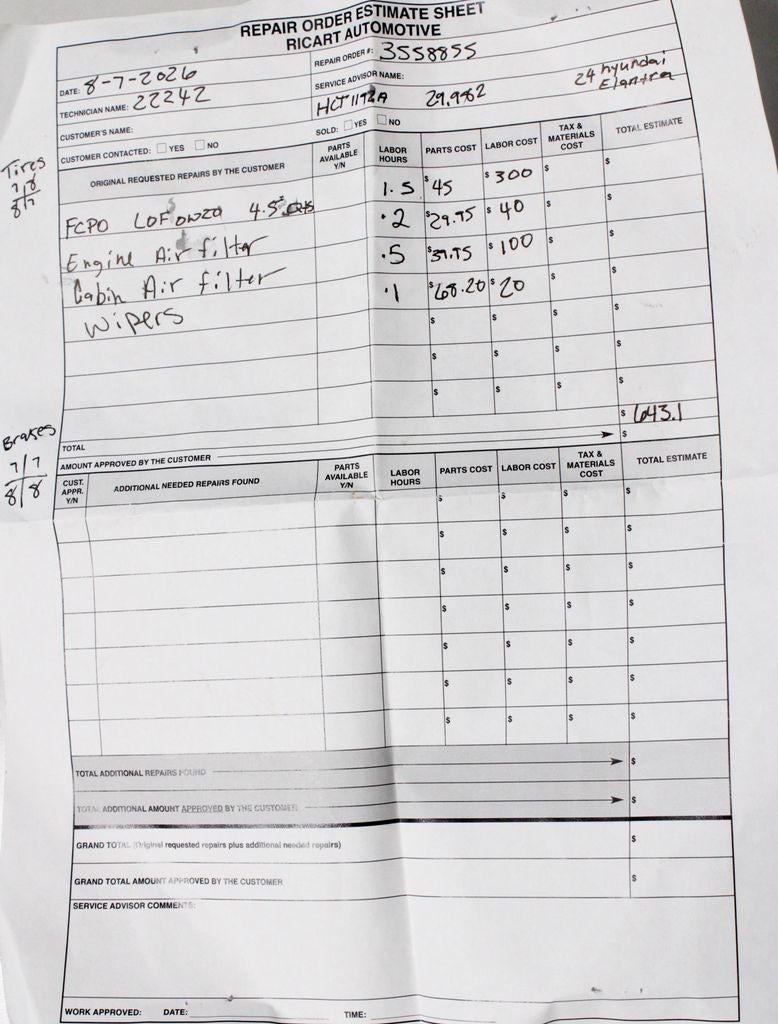 REPAIR ORDER ESTIMATE SHEET
RICART AUTOMOTIVE
DATE: 8-7-2026
REPAIR ORDER #: 3558855
TECHNICIAN NAME: 22242
SERVICE ADVISOR NAME:
24 hyundai
Elantra
CUSTOMER'S NAME:
HCT1192A 29,982
CUSTOMER CONTACTED: YES NO
SOLD: YES NO
Tires
7/8
8/7
ORIGINAL REQUESTED REPAIRS BY THE CUSTOMER PARTS AVAILABLE Y/N LABOR HOURS PARTS COST LABOR COST TAX & MATERIALS COST TOTAL ESTIMATE
1.5 $45 $300 $ $
FCPO LOF 0W20 4.5 .2 $29.95 $40 $ $
Engine Air filter .5 $39.95 $100 $ $
Cabin Air filter .1 $68.20 $20 $ $
Wipers $ $ $ $
$ $ $ $
$ $ $ $
TOTAL $ 643.1
AMOUNT APPROVED BY THE CUSTOMER $
Brakes
7/7
8/8
CUST. APPR. Y/N ADDITIONAL NEEDED REPAIRS FOUND PARTS AVAILABLE Y/N LABOR HOURS PARTS COST LABOR COST TAX & MATERIALS COST TOTAL ESTIMATE
$ $ $ $
$ $ $ $
$ $ $ $
$ $ $ $
$ $ $ $
$ $ $ $
$ $ $ $
TOTAL ADDITIONAL REPAIRS FOUND $
TOTAL ADDITIONAL AMOUNT APPROVED BY THE CUSTOMER $
GRAND TOTAL (Original requested repairs plus additional needed repairs) $
GRAND TOTAL AMOUNT APPROVED BY THE CUSTOMER $
SERVICE ADVISOR COMMENTS:
WORK APPROVED: DATE: TIME: